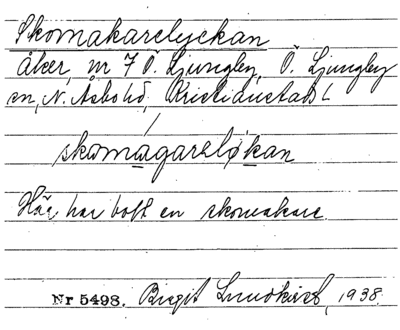 Skomakarelyckan
åker, nr 7 Ö. Ljungby, Ö. Ljungby
sn, N. Åsbo hd, Kristianstads l
skomagareløkan
Här har bott en skomakare.
Nr 5498. Birgit Lundkvist, 1938.